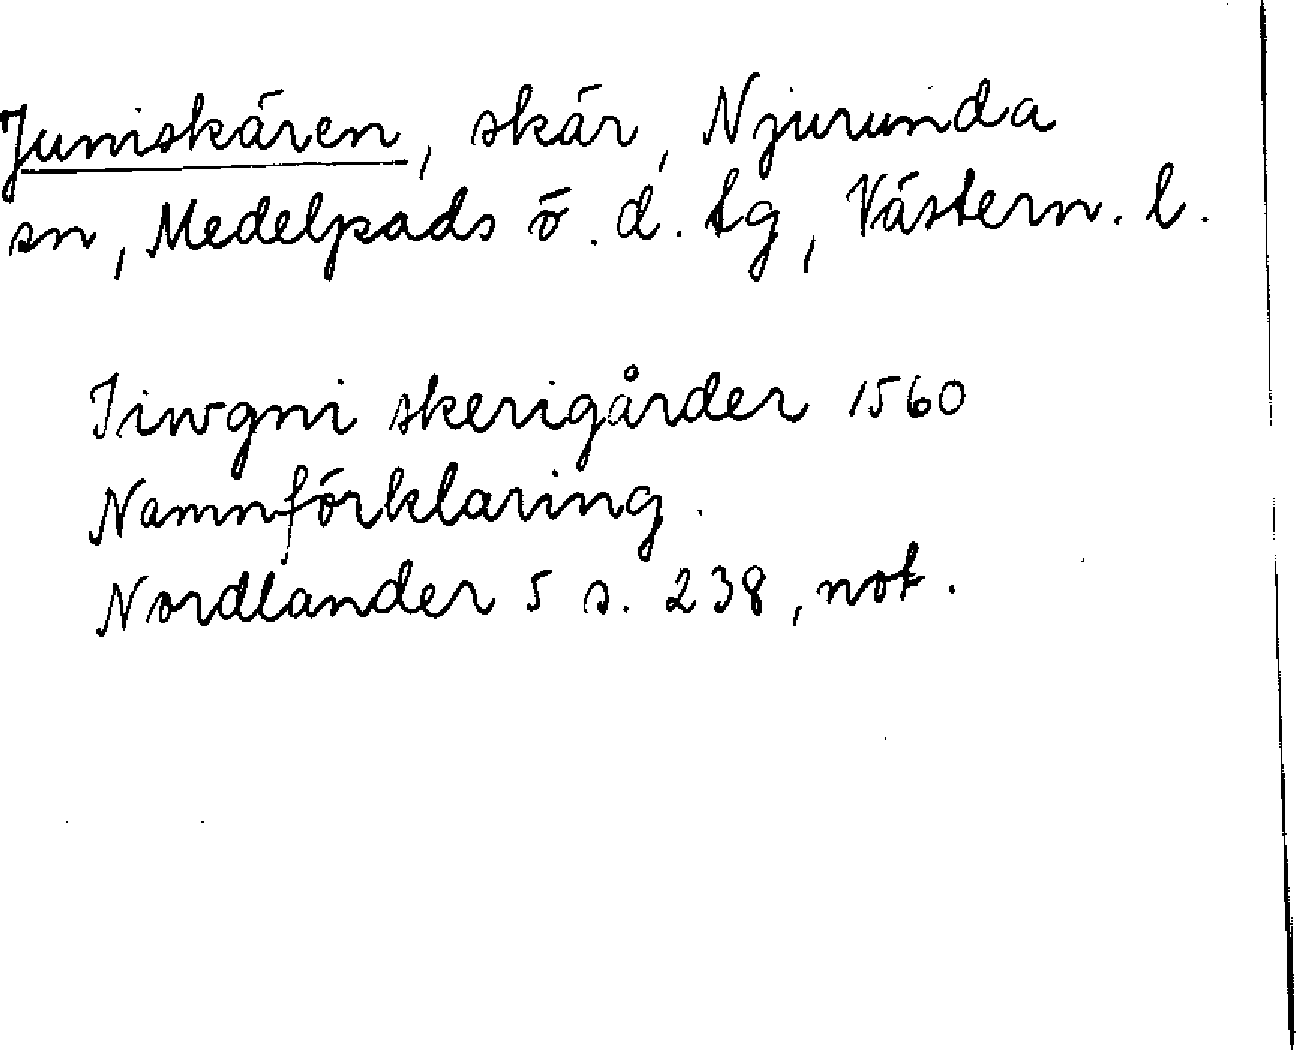 Juniskären, skär, Njurunda
sn, Medelpads ö. d. tg, Västern. l.
Iiwgni skerigårder 1560
Namnförklaring.
Nordlander 5 s. 238, not.